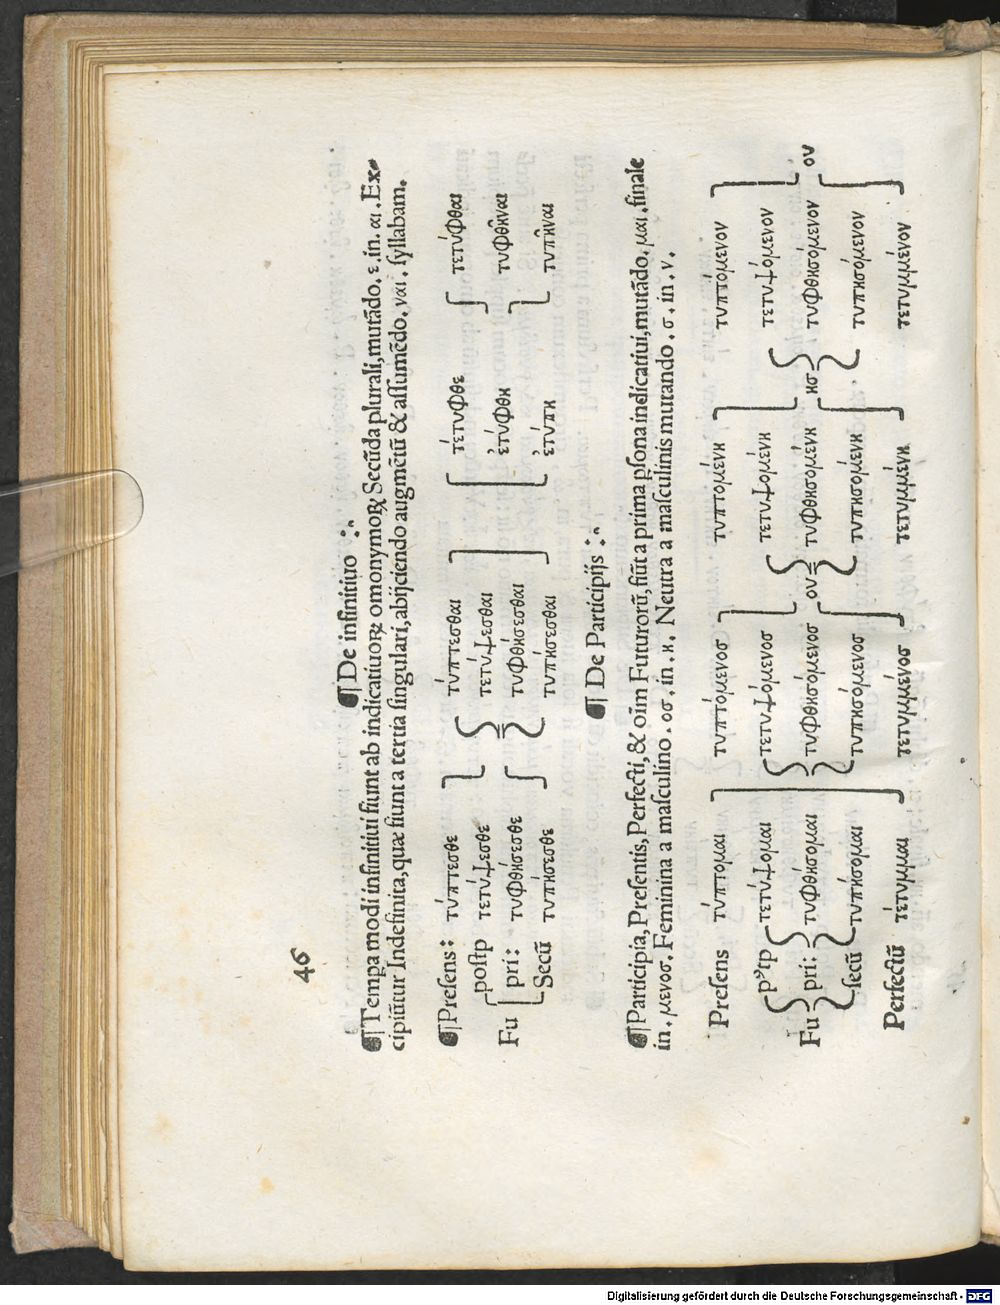 46
¶ De infinitiuo :~
¶Tempa modi infinitiui fiunt ab indicatiuoꝝ omonymoꝝ Secūda plurali, mutādo. ε. in. αι. Ex-
cipiūtur Indefinita, quæ fiunt a tertia singulari, abijciendo augmētū & assumēdo. ναι. syllabam.
¶Presens: τύπτεσθε τύπτεσθαι τέτυφθε τετύφθαι
postp τετύψεσθε τετύψεσθαι
Fu pri: τυφθήσεσθε τυφθήσεσθαι ἐτύφθη τυφθῆναι
Secū τυπήσεσθε τυπήσεσθαι ἐτύπη τυπῆναι
¶ De Participijs :~
¶Participia, Presentis, Perfecti, & oīm Futurorū, fiūt a prima psona indicatiui, mutādo. μαι. finale
in. μενοσ. Feminina a masculino. οσ. in. η. Neutra a masculinis mutando. σ. in. ν.
Presens τύπτομαι τυπτόμενοσ τυπτομένη τυπτόμενον
p9tp τετύψομαι τετυψόμενοσ τετυψομένη τετυψόμενον
Fu pri: τυφθήσομαι τυφθησόμενοσ ου τυφθησομένη ησ τυφθησόμενον ου
secū τυπήσομαι τυπησόμενοσ τυπησομένη τυπησόμενον
Perfectū τέτυμμαι τετυμμένοσ τετυμμένη τετυμμένον
Digitalisierung gefördert durch die Deutsche Forschungsgemeinschaft - DFG